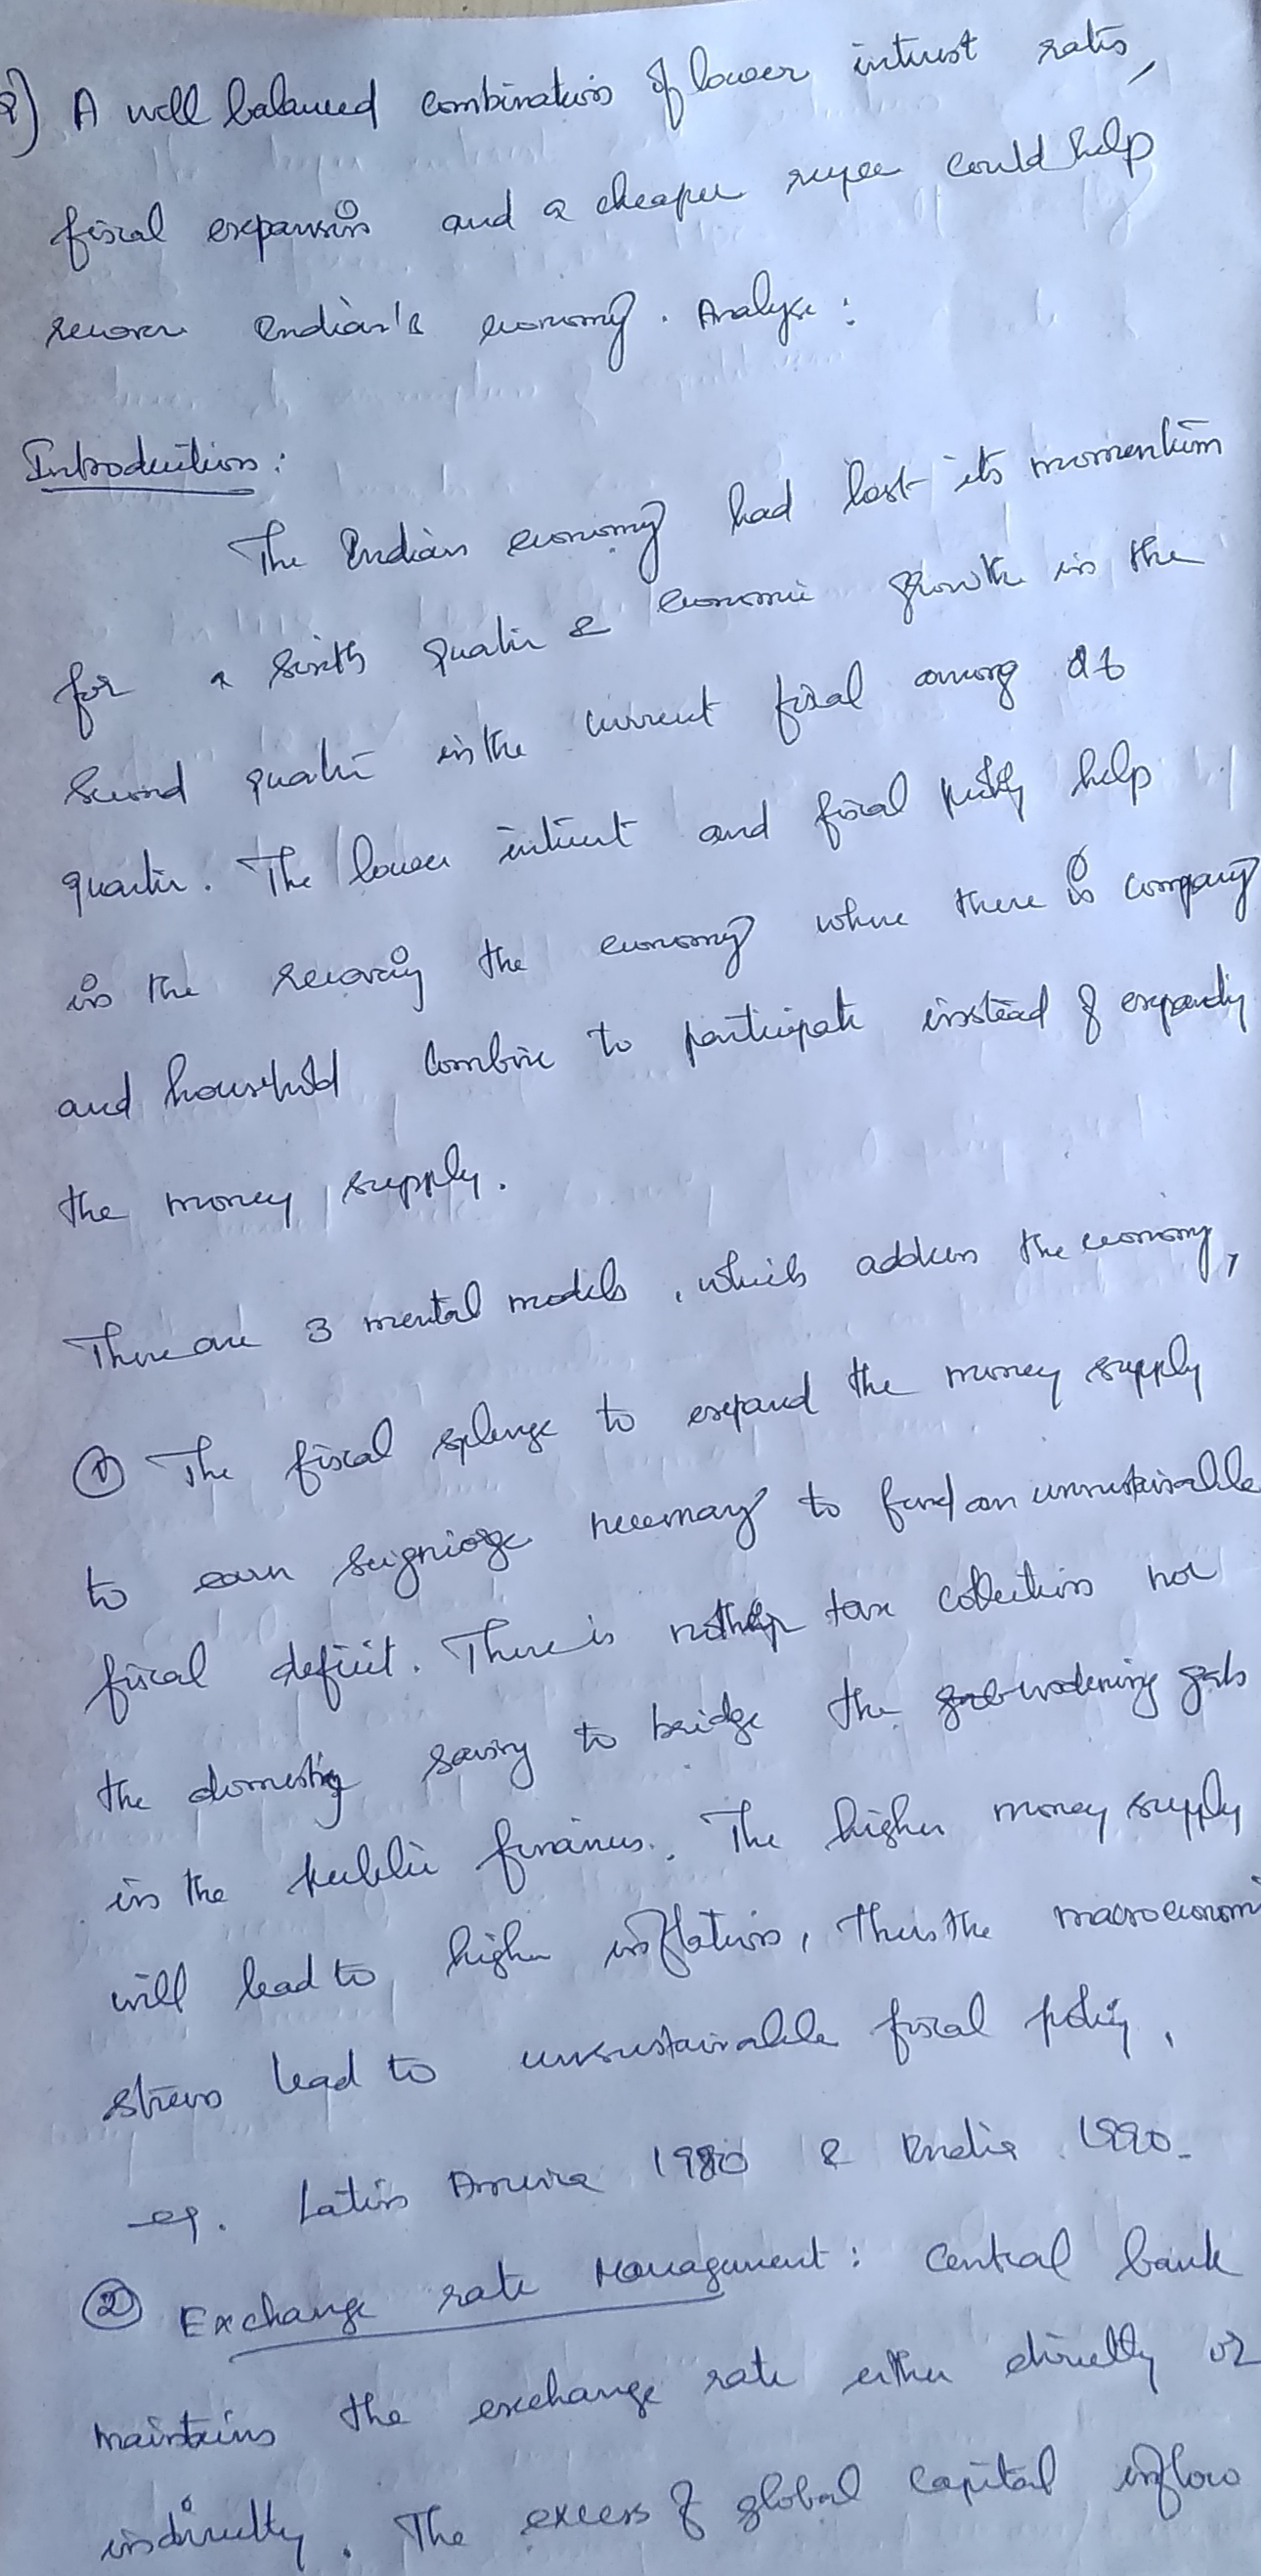 A well balanced combination of lower interest rates,
fiscal expansion and a cheaper rupee could help
recover Indian's economy. Analyse:
Introduction:
The Indian economy had lost its momentum
for a sixth quater & economic growth in the
second quater in the current fiscal among
quarter. The lower interest and fiscal policy help
in the recoving the economy where there is company
and household combine to participate instead of expandig
the money supply.
There are 3 mental models, which address the economy,
① The fiscal splurge to expand the money supply
to earn necessary to fund an unsustainable
fiscal deficit. There is tax collection nor
the domestic saving to bridge the widening gab
in the public finances. The higher money supply
will lead to higher inflation, thus the macroeconomi
stress lead to unsustainable fiscal policy.
eg. Latin America 1980 & India 1990.
② Exchange rate Management: Central bank
maintains the exchange rate either directly or
indirectly. The excess of global capital inflow